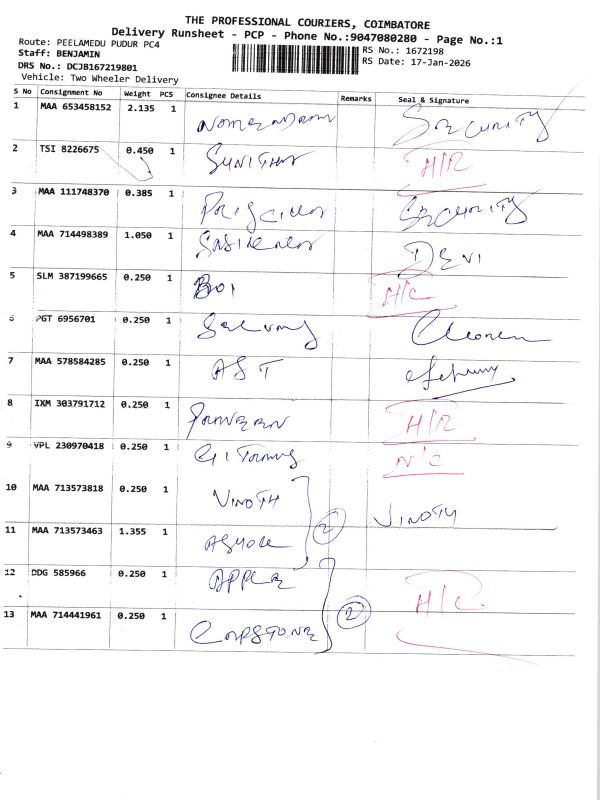 THE PROFESSIONAL COURIERS, COIMBATORE
Delivery Runsheet - PCP - Phone No.:9047080280 - Page No.:1
Route: PEELAMEDU PUDUR PC4
Staff: BENJAMIN
DRS No.: DCJB167219801
Vehicle: Two Wheeler Delivery
RS No.: 1672198
RS Date: 17-Jan-2026
S No Consignment No Weight PCS Consignee Details Remarks Seal & Signature
1 MAA 653458152 2.135 1 SECURITY
2 TSI 8226675 0.450 1 H/R
3 MAA 111748370 0.385 1 SECURITY
4 MAA 714498389 1.050 1 DEVI
5 SLM 387199665 0.250 1 BOI H/C
6 PGT 6956701 0.250 1
7 MAA 578584285 0.250 1 AST
8 IXM 303791712 0.250 1 H/R
9 VPL 230970418 0.250 1 N/C
10 MAA 713573818 0.250 1 VINOTH VINOTH
11 MAA 713573463 1.355 1 ASHOK 2
12 DDG 585966 0.250 1 APPLE H/C
13 MAA 714441961 0.250 1 CAPSTONE 2